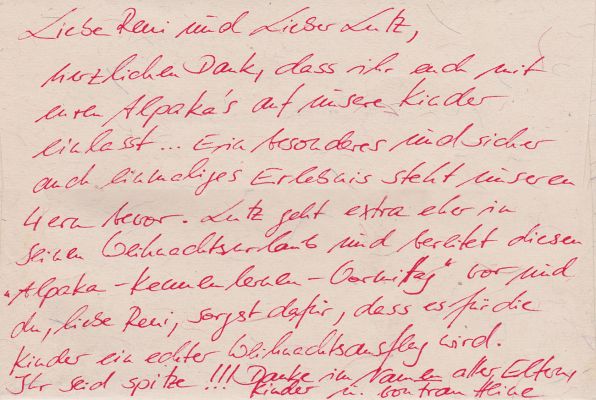 Liebe Reni und Lieber Lutz,
herzlichen Dank, dass ihr euch mit
euren Alpaka's auf unsere Kinder
einlasst... Ein besonderes und sicher
auch einmaliges Erlebnis steht unseren
bevor. Lutz geht extra eher in
seinen Weihnachtsurlaub und bereitet diesen
"Alpaka-Kennenlernen-Vormittag" vor und
du, liebe Reni, sorgst dafür, dass es für die
Kinder ein echter Weihnachtsausflug wird.
Ihr seid spitze!!! Danke im Namen aller Eltern,
Kinder u. von Frau Heine